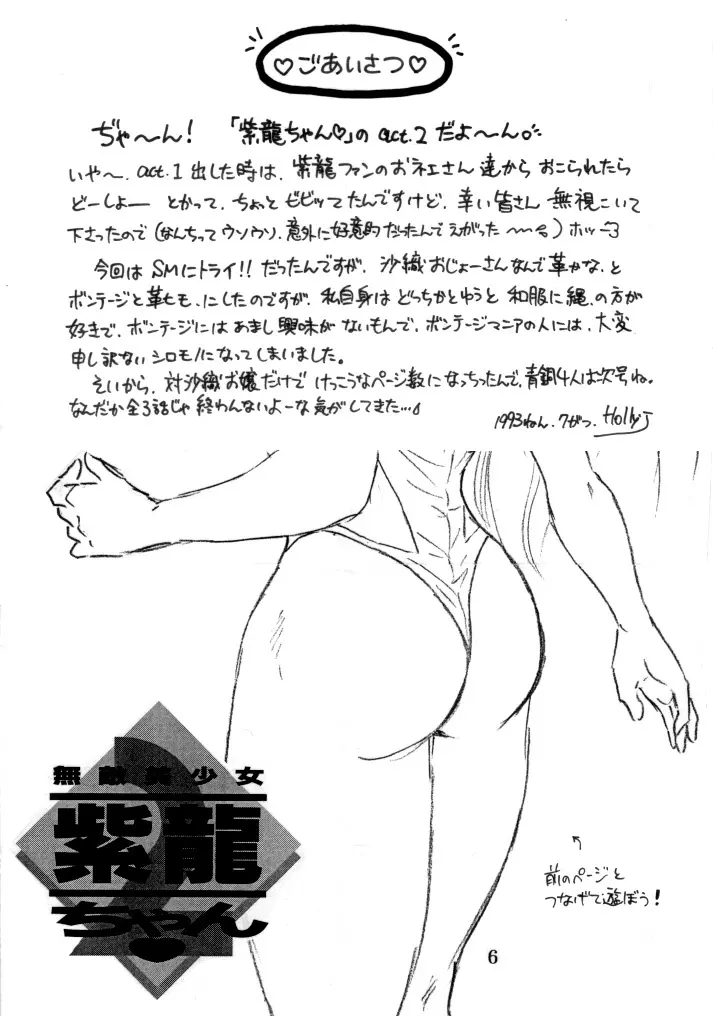 ♡ごあいさつ♡
ぢゃ〜ん! 「紫龍ちゃん♡」の act.2 だよ〜ん。
いや〜、act.1 出した時は、紫龍ファンのおネエさん達から おこられたら
どーしよー とかって、ちょっと ビビッてたんですけど、幸い皆さん 無視こいて
下さったので(なんちって ウソウソ、意外に好意的だったんで えがった〜〜)ホッ
今回は SMにトライ!! だったんですが、沙織おじょーさんなんで 革かな、と
ボンテージと革ヒモ、にしたのですが、私自身は どっちかとゆうと 和服に縄、の方が
好きで、ボンテージには あまし興味が ないもんで、ボンテージマニアの人には、大変
申し訳ない シロモノになってしまいました。
そいから、対沙織お嬢だけで けっこうなページ数に なっちったんで、青銅4人は次号ね。
なんだか全3話じゃ 終わんないよーな 気がしてきた…。
1993ねん、7がつ、HollyJ
無敵美少女
紫龍
ちゃん
2
前のページと
つなげて遊ぼう!
6